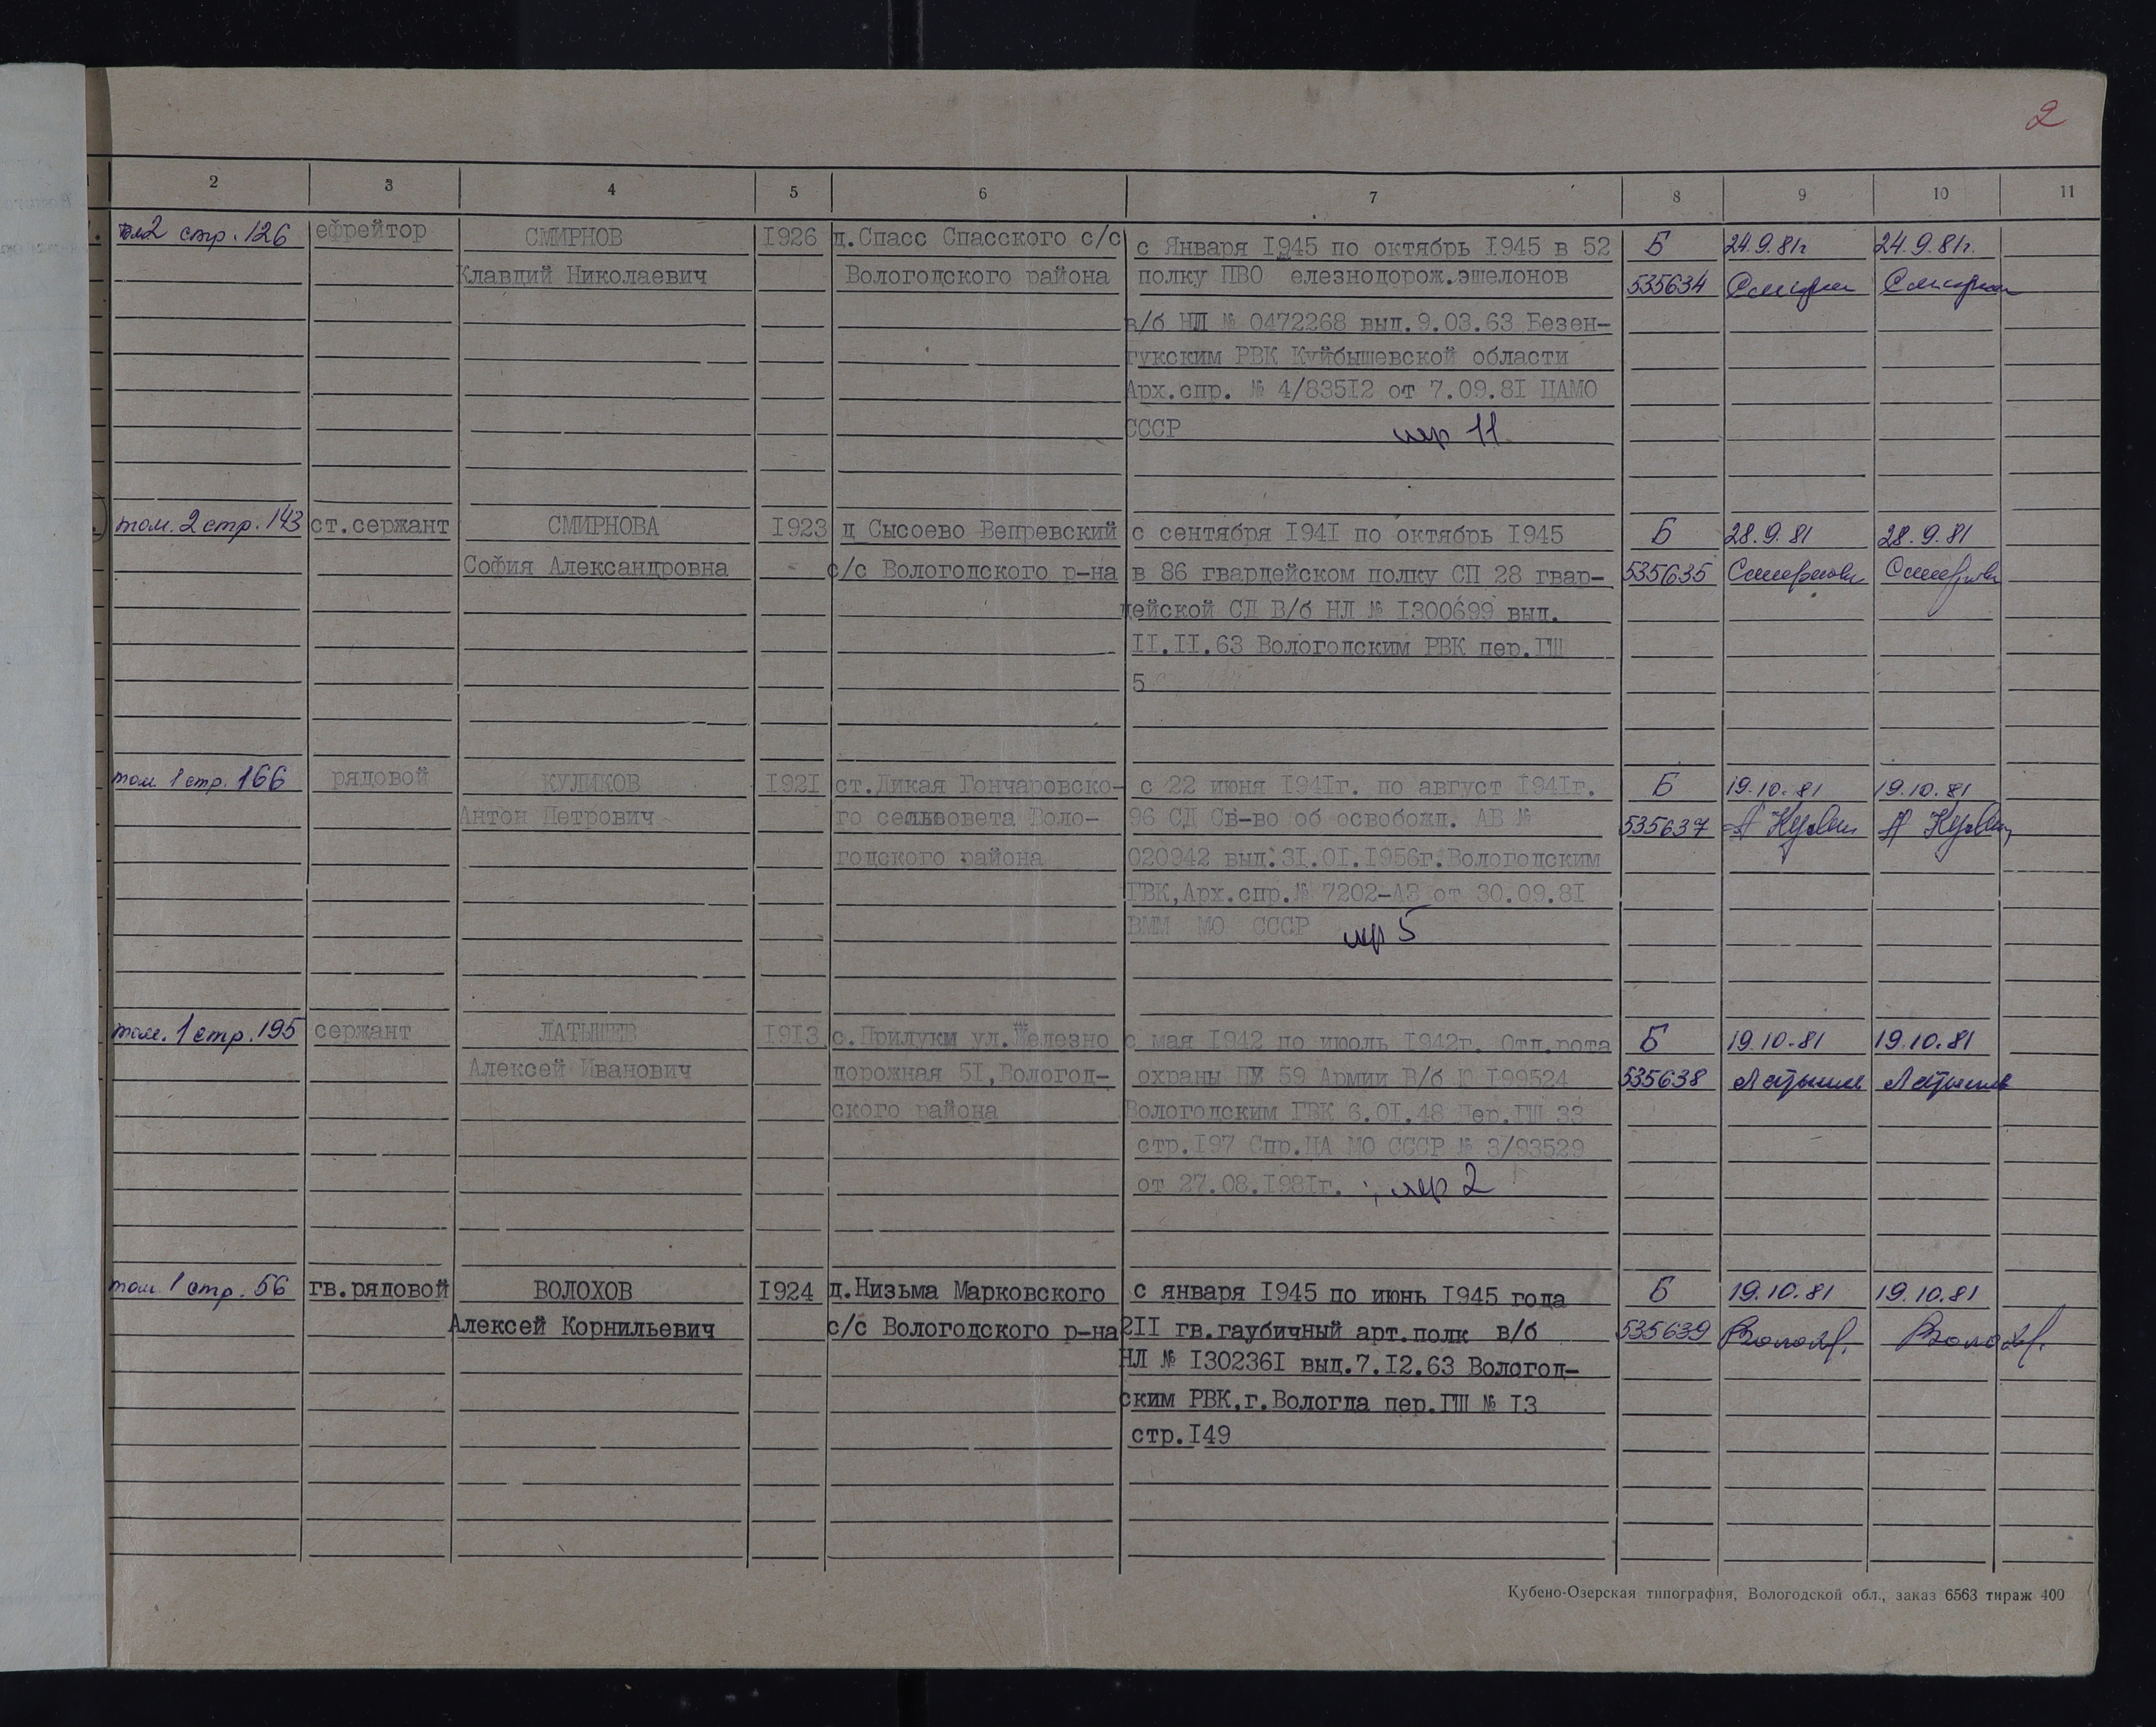 2
2 3 4 5 6 7 8 9 10 11
стр. 126 ефрейтор СМИРНОВ 1926 д.Спасс Спасского с/с с Января 1945 по октябрь 1945 в 52 Б 24.9.81г 24.9.81г.
Клавдий Николаевич Вологодского района полку ПВО елезнодорож.эшелонов 535634
в/б НЛ № 0472268 выд.9.03.63 Безен-
гукским РВК Куйбышевской области
Арх.спр. № 4/83512 от 7.09.81 ЦАМО
СССР 11
том. 2 стр. 143 ст.сержант СМИРНОВА 1923 д Сысоево Вепревский с сентября 1941 по октябрь 1945 Б 28.9.81 28.9.81
София Александровна с/с Вологодского р-на в 86 гвардейском полку СП 28 гвар- 535635 Смирнова Смирнова
дейской СД В/б НЛ № 1300699 выд.
11.11.63 Вологодским РВК пер.ГШ
5
том 1 стр. 166 рядовой КУЛИКОВ 1921 ст.Дикая Гончаровско- с 22 июня 1941г. по август 1941г. Б 19.10.81 19.10.81
Антон Петрович го сельсовета Воло- 96 СД Св-во об освобожд. АВ № 535637
годского района 020942 выд.31.01.1956г.Вологодским
ГВК,Арх.спр.№ 7202-АЗ от 30.09.81
ВММ МО СССР 5
том. 1 стр. 195 сержант ЛАТЫШЕВ 1913 с.Прилуки ул.Железно с мая 1942 по июль 1942г. Отд.рота Б 19.10.81 19.10.81
Алексей Иванович дорожная 51,Вологод- охраны 59 Армии В/б 199524 535638 Латышев Латышев
ского района Вологодским ГВК 6.01.48 Пер.ГШ 33
стр.197 Спр.ЦА МО СССР № 3/93529
от 27.08.1981г. 2
том 1 стр. 56 гв.рядовой ВОЛОХОВ 1924 д.Низьма Марковского с января 1945 по июнь 1945 года Б 19.10.81 19.10.81
Алексей Корнильевич с/с Вологодского р-на 211 гв.гаубичный арт.полк в/б 535639 Волохов Волохов
НЛ № 1302361 выд.7.12.63 Вологод-
ским РВК,г.Вологда пер.ГШ № 13
стр.149
Кубено-Озерская типография, Вологодской обл., заказ 6563 тираж 400